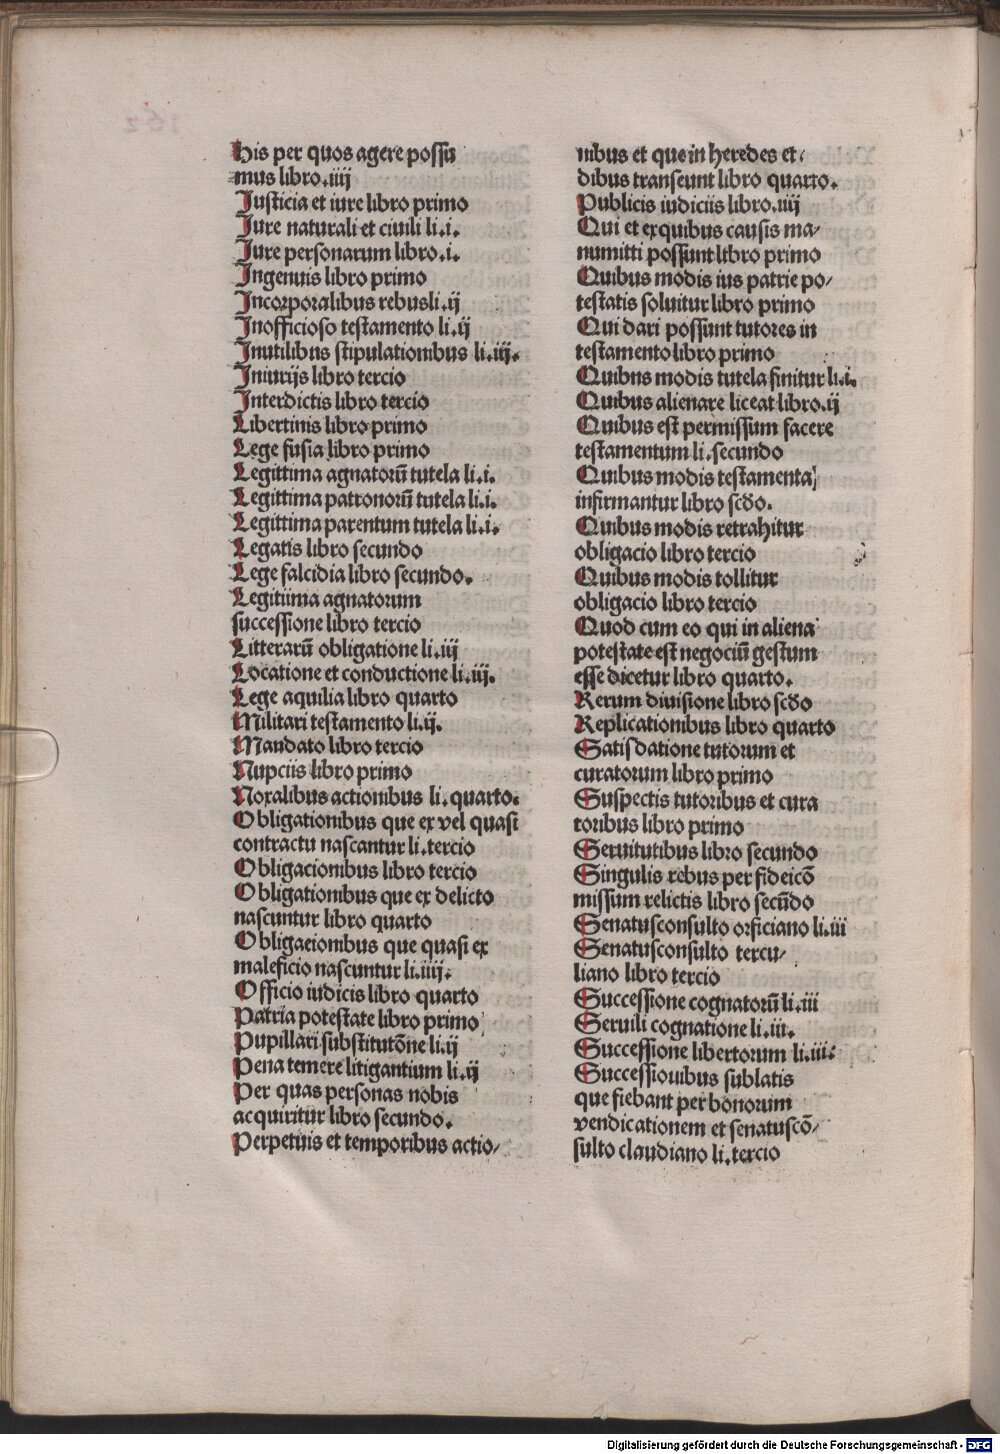 His per quos agere possu
mus libro.iiij
Justicia et iure libro primo
Jure naturali et ciuili li.i.
Jure personarum libro.i.
Ingenuis libro primo
Incorporalibus rebusli.ij
Inofficioso testamento li.ij
Inutilibus stipulationibus li.iij.
Iniurijs libro tercio
Interdictis libro tercio
Libertinis libro primo
Lege fusia libro primo
Legittima agnatorū tutela li.i.
Legittima patronorū tutela li.i.
Legittima parentum tutela li.i.
Legatis libro secundo
Lege falcidia libro secundo.
Legitima agnatorum
successione libro tercio
Litterarū obligatione li.iij
Locatione et conductione li.iij.
Lege aquilia libro quarto
Militari testamento li.ij.
Mandato libro tercio
Nupciis libro primo
Noxalibus actionibus li.quarto.
Obligationibus que ex vel quasi
contractu nascantur li.tercio
Obligacionibus libro tercio
Obligationibus que ex delicto
nascuntur libro quarto
Obligaeionibus que quasi ex
maleficio nascuntur li.iiij.
Officio iudicis libro quarto
Patria potestate libro primo
Pupillari substitutōne li.ij
Pena temere litigantium li.ij
Per quas personas nobis
acquiritur libro secundo.
Perpetuis et temporibus actio/
nibus et que in heredes et/
dibus transeunt libro quarto.
Publicis iudiciis libro.iiij
Qui et exquibus causis ma/
numitti possunt libro primo
Quibus modis ius patrie po/
testatis soluitur libro primo
Qui dari possunt tutores in
testamento libro primo
Quibns modis tutela finitur li.i.
Quibus alienare liceat libro.ij
Quibus est permissum facere
testamentum li.secundo
Quibus modis testamenta
infirmantur libro scdo.
Quibus modis retrahitur
obligacio libro tercio
Quibus modis tollitur
obligacio libro tercio
Quod cum eo qui in aliena
potestate est negociū gestum
esse dicetur libro quarto.
Rerum diuisione libro scdo
Replicationibus libro quarto
Satisdatione tutorum et
curatorum libro primo
Suspectis tutoribus et cura
toribus libro primo
Seruitutibus libro secundo
Singulis rebus per fideicō
missum relictis libro secūdo
Senatusconsulto orficiano li.iii
Senatusconsulto tercu/
liano libro tercio
Successione cognatorū li.iii
Seruili cognatione li.iii.
Successione libertorum li.iii.
Successionibus sublatis
que fiebant per bonorum
vendicationem et senatuscō/
sulto claudiano li.tercio
Digitalisierung gefördert durch die Deutsche Forschungsgemeinschaft - DFG